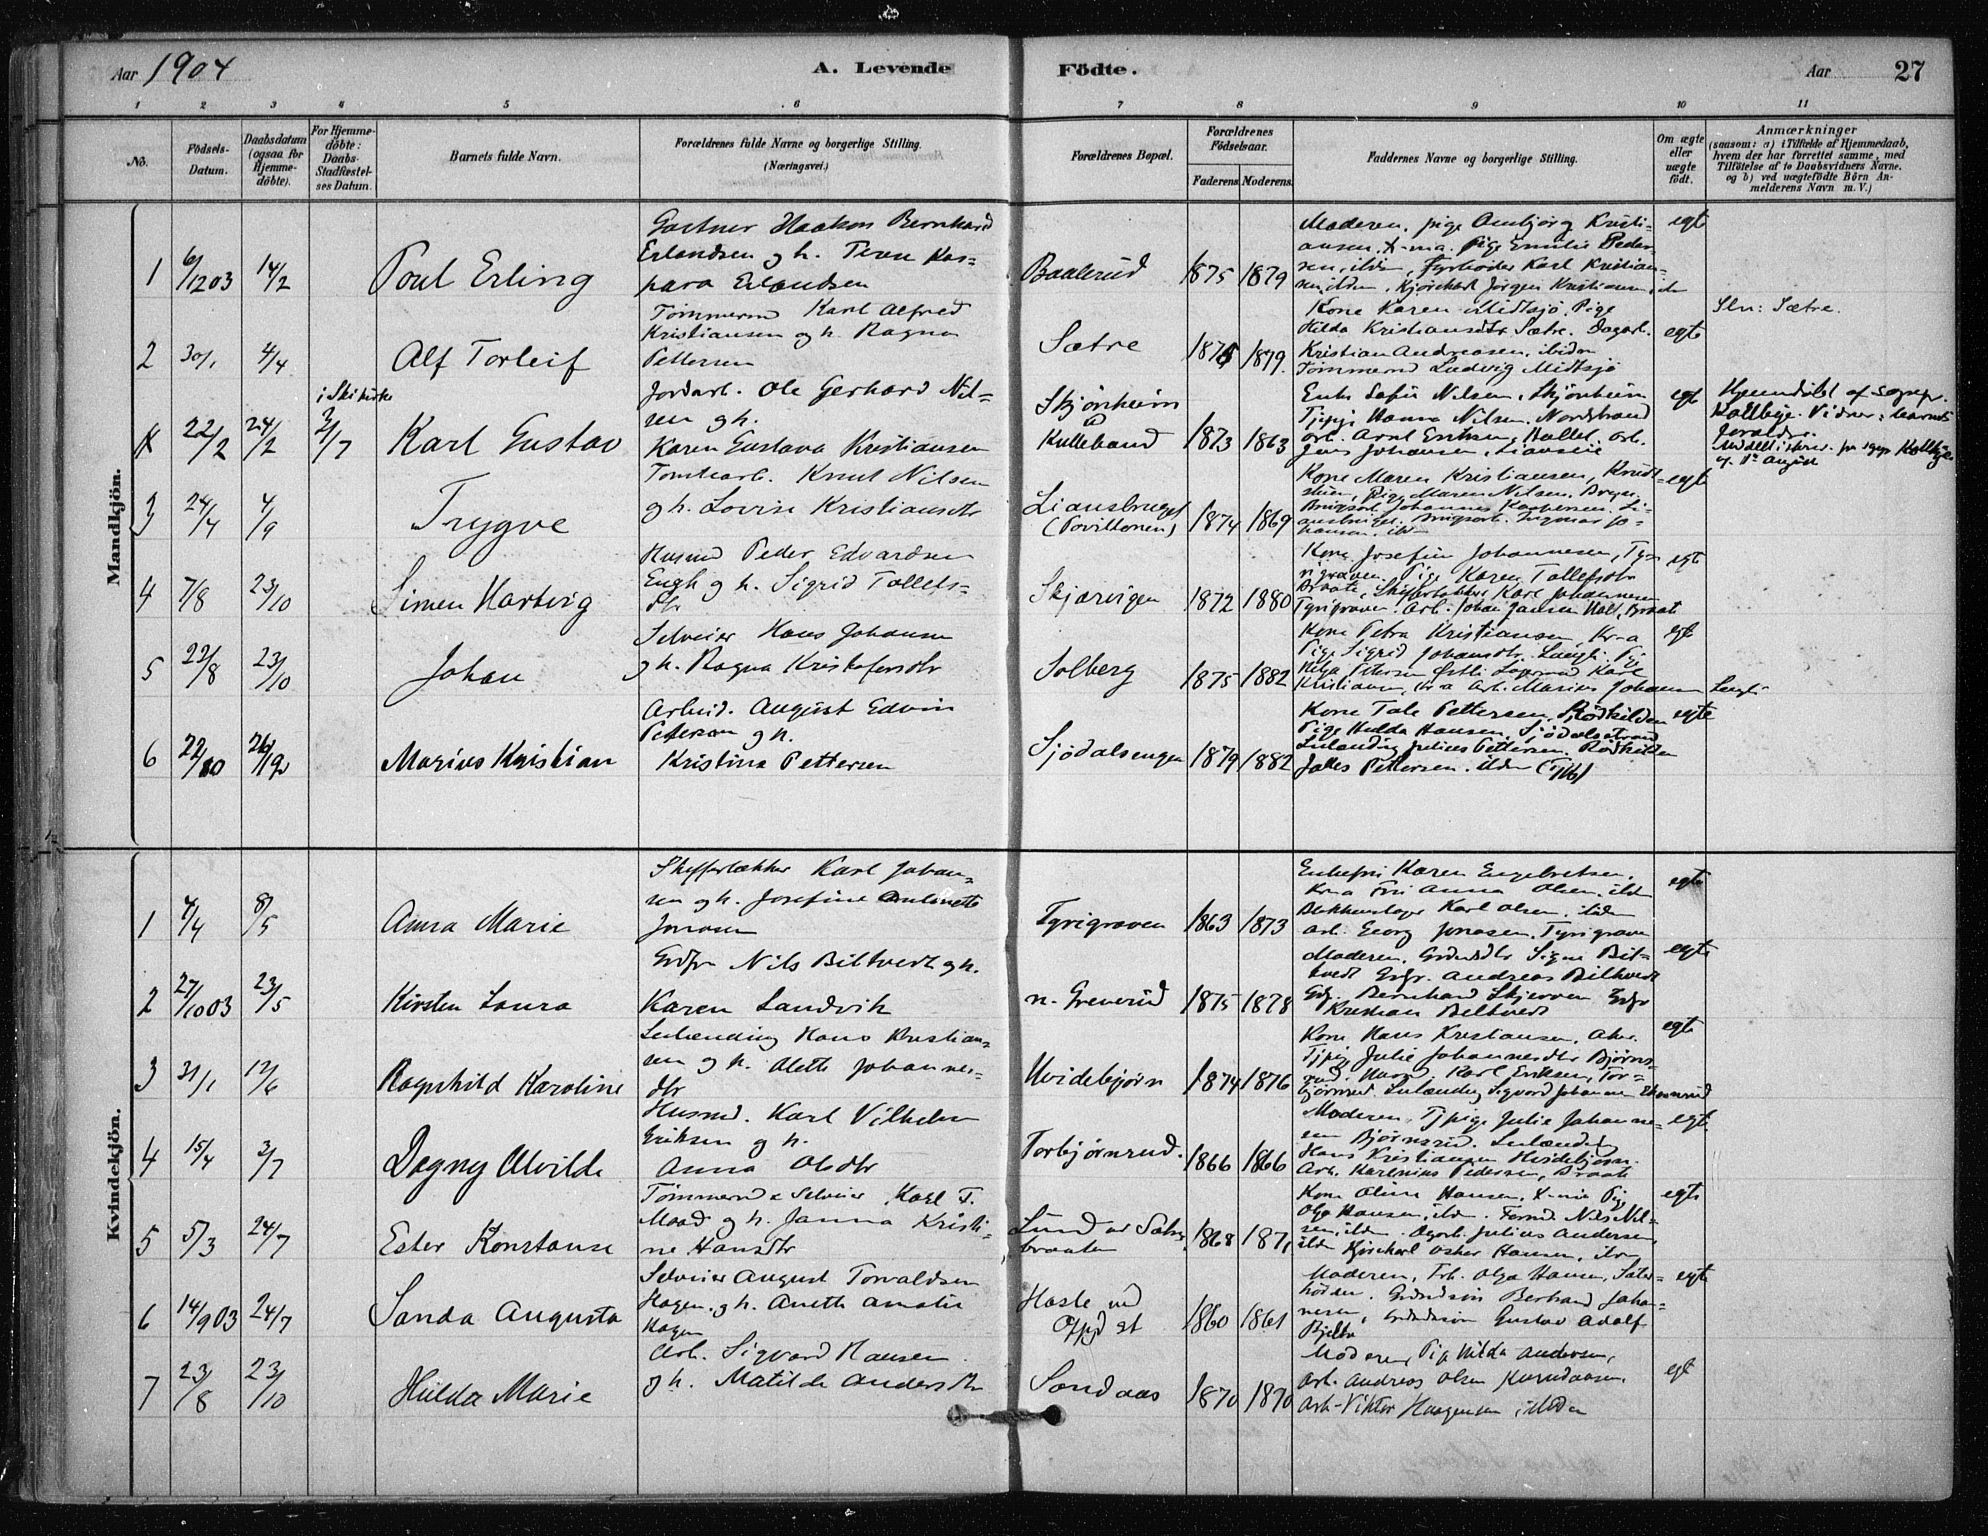 Aar 1904
A. Levende Födte.
Aar 27
1 2 3 4 5 6 7 8 9 10 11
No.
Födsels-Datum.
Daabsdatum (ogsaa for Hjemme-döbte).
For Hjemme-döbte: Daabs-Stadfæstel-ses Datum.
Barnets fulde Navn.
Forældrenes fulde Navne og borgerlige Stilling. (Næringsvei.)
Forældrenes Bopæl.
Forældrenes Födselsaar.
Faderens. Moderens.
Faddernes Navne og borgerlige Stilling.
Om ægte eller uægte födt.
Anmærkninger
(saasom: a) i Tilfælde af Hjemmedaab, hvem der har forrettet samme, med Tilföielse af to Daabsvidners Navne. og b) ved uægtefödte Börn An-melderens Navn m. V.)
Mandkjön.
1 6/12 03 14/2 Poul Erling
Gartner Haakon Bernhard
Erlandsen og h. Teran Kas-
para Erlandsen
Baalerud 1875 1879
Moderen, pige Ambjörg Kristi-
ansen, X-nia. Pige Emilie Peder
sen, ilden, Fyrböder Karl Kristian-
sen, ilden. Kjörekarl Jörgen Kristiansen, ild
egte
2 30/1 4/4 Alf Torleif
Tömmermd Karl Alfred
Kristiansen og h. Ragna
Pettersen
Sætre 1875 1879
Kone Karen Midtsjö, Pige
Hilda Kristiansdtr Sætre. Dagarb.
Kristian Andreasen, ibidm
Tömmermd Ludvig Midtsjö
egte
Sln: Sætre.
i Ski kirke
22/2 24/2 3/7 Karl Gustav
Jordarb. Ole Gerhard Nil-
sen og h.
Karen Gustava Kristiansen
Skjönheim
Kullebund 1873 1863
Enke Sofie Nilsen, Skjönheim
Tjpige Hanna Nilsen, Nordstrand
arb. Arnt Eriksen, Hallet. arb.
Jens Johansen, Liansei
egte
Hjemdöbt af sogepr.
Kallbye. Vidner: barnets
foreldre.
3 24/4 4/9 Trygve
Tomtearb. Knut Nilsen
og h. Lovise Kristiansdtr
Liansbruget
(Pavillonen) 1874 1869
Kone Maren Kristiansen, Knud-
stuen, Pige Maren Nilsen, Bryn.
Brugsarb. Johannes Kaspersen, Li-
ansbruget. Brugsarb. Ingmar Jo-
hansen. ild
egte
4 7/8 23/10 Simen Hartvig
Husmd Peder Edvardsen
Engh og h. Sigrid Tollefs-
dtr
Skjærvigen 1872 1880
Kone Josefine Johannesen, Ty-
rigraven. Pige Karen Tollefsdtr
Braate, Skiferlækker Karl Johannesen
Tyrigraven. Arb. Johan Jansen Hall, Braate
egt
5 23/8 23/10 Johan
Selveier Hans Johansen
og h. Ragna Kristofersdtr
Solberg 1875 1882
Kone Petra Kristiansen, Kr-a
Pige Sigrid Johansdtr. Langli. Pige
Helga Petersen Östli Lagermd Karl
Kristiansen, Kr a Arb. Marius Johansen Langli
egt
6 22/10 26/12 Marius Kristian
Arbeid. August Edvin
Petersen og h.
Kristina Pettersen
Sjödalsengen 1879 1882
Kone Tale Pettersen, Rödkilden
Pige Hulda Hansen, Sjödalstrand
Inlanding Julius Pettersen. Rödkilden
Jalles Pettersen. ilden
egte
Kvindekjön.
1 4/4 8/5 Anna Marie
Skifferlækker Karl Johan-
sen og h. Josefine Antonette
Jonasen
Tyrigraven 1863 1873
Enkefru Karen Engebretsen,
Kr-a Fru Anna Olsen. ilden
Blikkenslager Karl Olsen. ilden
Arb. Georg Jonasen. Tyrigraven
egte
2 27/10 03 23/5 Kirsten Laura
Grdfr Nils Biltvedt og h.
Karen Sandvik
n. Greverud 1875 1878
Moderen, Grdmdtr Signe Bil-
tvedt Grdfr. Andreas Biltvedt
Grdfr. Bernhard Skjerven Grdfr
Kristian Biltvedt
egte
3 31/1 12/6 Ragnhild Karoline
Inlænding Hans Kristian-
sen og h. Alette Johannes-
dtr
Hvidebjørn 1874 1876
Kone Hans Kristiansen, Aker.
Tjpig Julie Johannesdtr Björns-
rud. Husmd. Karl Eriksen, Tor-
björnrud. Inlænding Sigvard Johannesen
egte
4 15/4 3/7 Dagny Alvilde
Husmd. Karl Vilhelm
Eriksen og h.
Anna Olsdtr
Torbjørnrud. 1866 1866
Moderen, Tjpige Julie Johanne-
sen Björnsrud. Inlænding
Hans Kristiansen Hvidebjørn.
Arb. Karenius Pedersen, Braate
egt.
5 5/3 24/7 Ester Konstanse
Tömmermd & Selveier Karl T.
Moad og h. Janna Kristi-
ne Hansdtr
Lund
braaten 1868 1871
Kone Oline Hansen, X-nia Pige
Olga Hansen, ilden. Formd. Nils Nil-
sen, ilden. Dagarb. Julius Andersen,
ilden Kjörekarl Oskar Hansen, ilden
egte
6 14/9 03 24/7 Sanda Augusta
Selveier August Torvaldsen
Hagen. og h. Anette Amalie
Hagen
Hasle ved
Oppd st 1860 1861
Moderen, Frk. Olga Hansen, Säter-
hödden. Grdmdsön Berhard Johan-
nesen, Grdmdsön Gustav Adolf
Bjelke
egte
7 23/8 23/10 Hulda Marie
Arb. Sigvard Hansen
og h. Matilde Andersdtr
Sandaas 1870 1870
Moderen, Pig Hilda Andersen,
Arb. Andreas Olsen
Arb. Viktor Haagensen ilden
egt